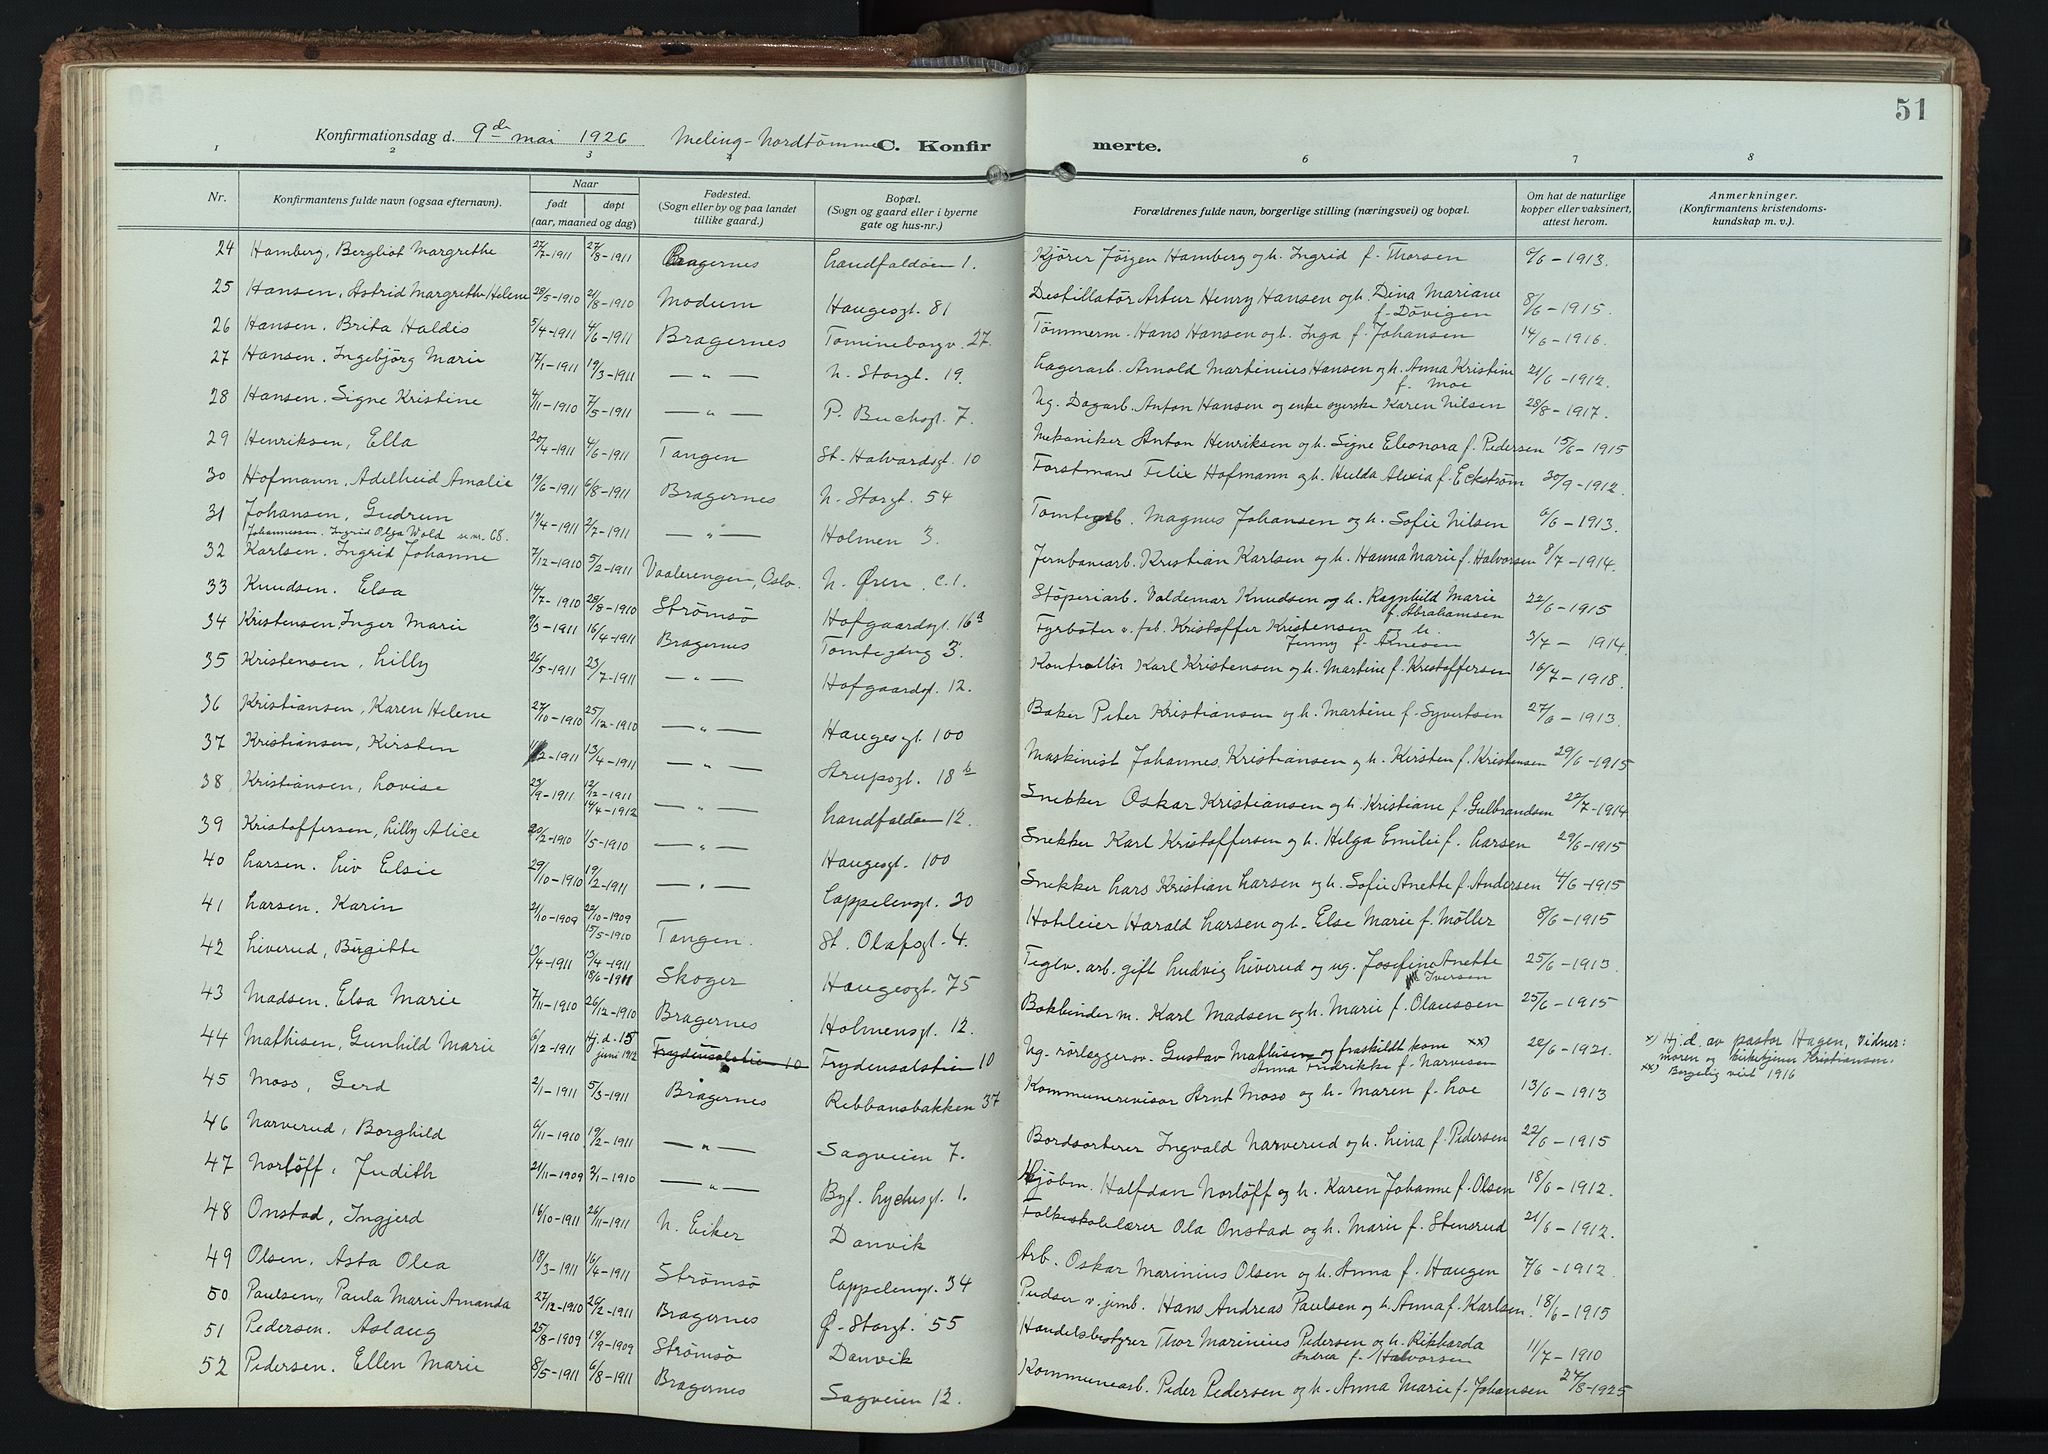 51
Konfirmationsdag d. 9de mai 1926 Meling-Nordtømme C. Konfir merte.
1 2 3 4 5 6 7 8
Nr. Konfirmantens fulde navn (ogsaa efternavn). Naar født døpt (aar, maaned og dag) Fødested. (Sogn eller by og paa landet tillike gaard.) Bopæl. (Sogn og gaard eller i byerne gate og hus-nr.) Forældrenes fulde navn, borgerlige stilling (næringsvei) og bopæl. Om hat de naturlige kopper eller vaksinert, attest herom. Anmerkninger. (Konfirmantens kristendoms- kundskap m. v.).
24 Hamberg, Bergliot Margrethe 27/7-1911 27/8-1911 Bragernes Landfaldøen 1. Kjører Jörgen Hamberg og h. Ingrid f. Thorsen 6/6-1913.
25 Hansen, Astrid Margrethe Helene 28/5-1910 21/8-1910 Modum Haugesgt. 81 Destillatør Artur Henry Hansen og h. Dina Mariane f. Dövigen 8/6-1915.
26 Hansen. Brita Haldis 5/4-1911 4/6-1911 Bragernes Tomineborgv. 27. Tømmerm. Hans Hansen og h. Inga f. Johansen 14/6-1916.
27 Hansen. Ingebjörg Marie 17/1-1911 19/3-1911 — " — N. Storgt. 19. Lagerarb. Arnold Martinius Hansen og h. Anna Kristine f. Moe 21/6-1912.
28 Hansen. Signe Kristine 4/11-1910 7/5-1911 — " — P. Buchsgt. 7. Ug. Dagarb. Anton Hansen og enke syerske Karen Nilsen 28/8-1917.
29 Henriksen, Ella 20/4-1911 4/6-1911 Tangen St. Halvardsgt. 10 Mekaniker Anton Henriksen og h. Signe Eleonora f. Pedersen 15/6-1915
30 Hofmann, Adelheid Amalie 19/6-1911 6/8-1911 Bragernes N. Storgt. 54 Forstmand Felix Hofmann og h. Hulda Alexia f. Eckstrøm 30/9-1912.
31 Johansen, Gudrun 19/4-1911 2/7-1911 — " — Holmen 3. Tomtearb. Magnus Johansen og h. Sofie Nilsen 6/6-1913.
Johannessen. Ingrid Olga Wold se nr. 68.
32 Karlsen. Ingrid Johanne 7/12-1910 5/2-1911 Vaalerengen, Oslo. N. Øren c. 1. Jernbanearb. Kristian Karlsen og h. Hanna Marie f. Halvorsen 8/7-1914.
33 Knudsen. Elsa 14/7-1910 28/8-1910 Strømsø Hofgaardsgt. 16a Støperiarb. Valdemar Knudsen og h. Ragnhild Marie f. Abrahamsen 22/6-1915
34 Kristensen, Inger Marie 9/3-1911 16/4-1911 Bragernes Tomtegang 3. Fyrbøter v. fab. Kristoffer Kristensen og h. Jenny f. Arnesen 3/7-1914.
35 Kristensen, Lilly 26/5-1911 23/7-1911 — " — Hofgaardsgt. 12. Kontrollör Karl Kristensen og h. Martine f. Kristoffersen 16/7-1918.
36 Kristiansen, Karen Helene 27/10-1910 25/12-1910 — " — Haugesgt. 100 Baker Peter Kristiansen og h. Martine f. Syvertsen 27/6-1913.
37 Kristiansen, Kirsten 2-1911 13/4-1911 — " — Strupsgt. 18 b Maskinist Johannes Kristiansen og h. Kirsten f. Kristensen 29/6-1915
38 Kristiansen, Lovise 23/9-1911 12/12-1911 14/4-1912 — " — Landfaldøen 12. Snekker Oskar Kristiansen og h. Kristiane f. Gulbrandsen 22/7-1914
39 Kristoffersen, Lilly Alice 20/2-1910 1/5-1910 — " — Haugesgt. 100 Snekker Karl Kristoffersen og h. Helga Emilie f. Larsen 29/6-1915
40 Larsen. Liv Elsie 29/10-1910 19/2-1911 — " — Cappelensgt. 30 Snekker Lars Kristian Larsen og h. Sofie Anette f. Andersen 4/6-1915
41 Larsen. Karin 21/10-1909 22/10-1909 15/5-1910 Tangen. St. Olafsgt. 4. Hotsleier Harald Larsen og h. Else Marie f. Møller 8/6-1915
42 Liverud, Birgitte 13/4-1911 13/4-1911 18/6-1911 Skoger Haugesgt. 75 Teglv. arb. gift Ludvig Liverud og ug. Josefine Anette Iversen 25/6-1913.
43 Madsen. Elsa Marie 7/11-1910 26/12-1910 Bragernes Holmensgt. 12. Bokbinder m. Karl Madsen og h. Marie f. Olaussen 25/6-1915
44 Mathisen, Gunhild Marie 6/12-1911 Hj. d. 15 juni 1912 Frydensalstien 10 Frydensalstien 10 Ug. rørleggersv. Gustav Mathisen og fraskildt kom xx) Anna Fredrikke f. Narvesen 22/6-1921. x) Hj. d. av pastor Hagen, Vidner: moren og kirketjener Kristiansen. xx) Borgelig viet 1916
45 Moso, Gerd 2/1-1911 5/3-1911 Bragernes Ribbansbakken 37 Kommunerevisor Arnt Moso og h. Maren f. Loe 13/6-1913
46 Narverud, Borghild 6/11-1910 19/2-1911 — " — Sagveien 7. Bordsorterer Ingvald Narverud og h. Lina f. Pedersen 22/6-1915
47 Norløff, Judith 21/11-1909 2/1-1910 — " — Byf. Lychesgt. 1. Kjöbm. Halfdan Norløff og h. Karen Johanne f. Olsen 18/6-1912.
48 Onstad, Ingjerd 16/10-1911 26/11-1911 N. Eiker Danvik Folkeskolelærer Ola Onstad og h. Marie f. Stensrud 21/6-1912.
49 Olsen. Asta Olea 18/3-1911 16/4-1911 Strømsö Cappelensgt. 34 Arb. Oskar Marinius Olsen og h. Anna f. Haugen 7/6-1912.
50 Paulsen, Paula Marie Amanda 27/12-1910 26/2-1911 Bragernes Ø. Storgt. 55 Pudser v. jernb. Hans Andreas Paulsen og h. Anna f. Karlsen. 18/6-1915
51 Pedersen. Aslaug 25/8-1909 19/9-1909 Strømsö Danvik Handelsbestyrer Thor Marinius Pedersen og h. Rikharda Andrea f. Halvorsen 11/7-1910
52 Pedersen. Ellen Marie 8/5-1911 6/8-1911 Bragernes Sagveien 12. Kommunearb. Peder Pedersen og h. Anna Marie f. Johansen 24/8-1925